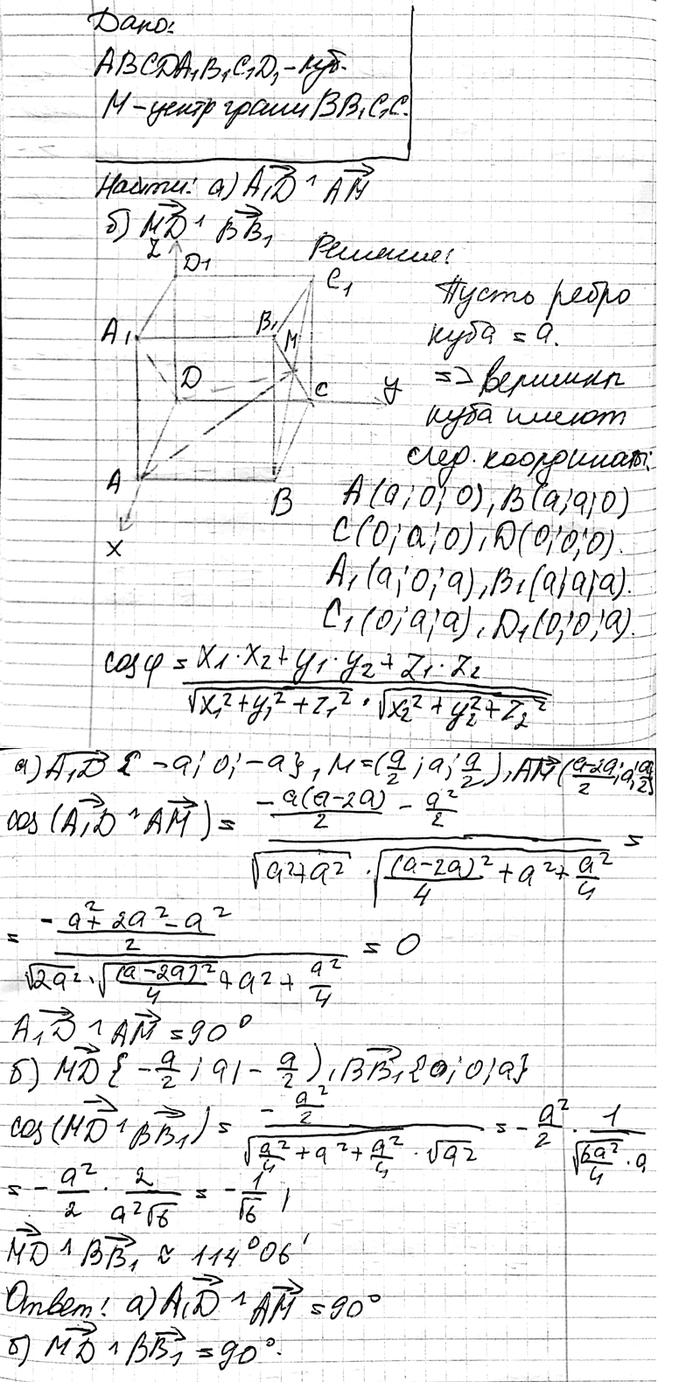 Дано:
ABCDA₁B₁C₁D₁ - куб.
M - центр грани BB₁C₁C.
Найти: а) A₁D ^ AM
б) MD ^ BB₁
Решение:
Z
D₁
C₁
A₁
B₁
M
D
C
y
A
B
X
Пусть ребро
куба = a.
=> Вершины
куба имеют
след. координаты:
A(a; 0; 0), B(a; a; 0)
C(0; a; 0), D(0; 0; 0).
A₁(a; 0; a), B₁(a; a; a).
C₁(0; a; a), D₁(0; 0; a).
cos φ = (x₁·x₂ + y₁·y₂ + z₁·z₂) / (√(x₁² + y₁² + z₁²) · √(x₂² + y₂² + z₂²))
а) A₁D {-a; 0; -a}, M = (a/2; a; a/2), AM ((a-2a)/2; a; a/2)
cos(A₁D ^ AM) = (-a(a-2a)/2 - a²/2) / (√(a²+a²) · √((a-2a)²/4 + a² + a²/4)) =
= ((-a² + 2a² - a²)/2) / (√(2a²) · √((a-2a)²/4 + a² + a²/4)) = 0
A₁D ^ AM = 90°
б) MD {-a/2; a; -a/2), BB₁ {0; 0; a}
cos(MD ^ BB₁) = (-a²/2) / (√(a²/4 + a² + a²/4) · √a²) = -a²/2 · 1/(√(6a²/4) · a)
= -a²/2 · 2/(a²√6) = -1/√6;
MD ^ BB₁ ≈ 114°06'
Ответ: а) A₁D ^ AM = 90°
б) MD ^ BB₁ = 90°.